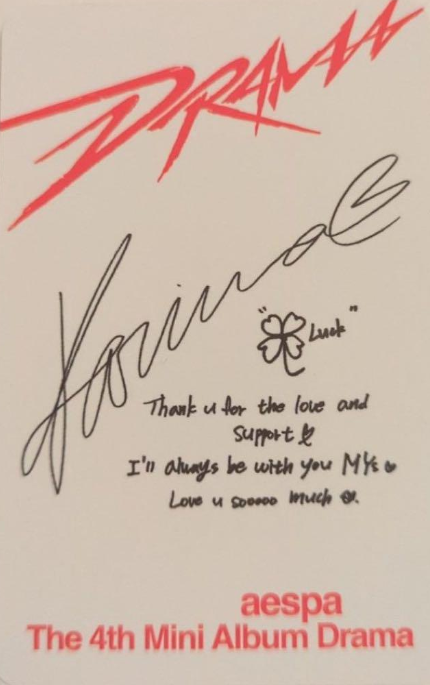 DRAMA
Karina
"🍀 Luck"
Thank u for the love and
support ♡
I'll always be with you MYs ♥
Love u sooooo much ♡.
aespa
The 4th Mini Album Drama